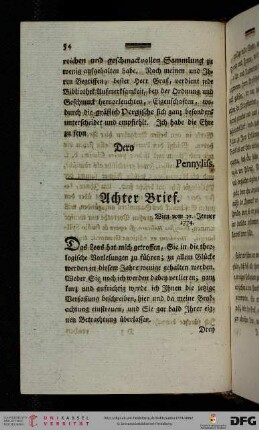 54
reichen und geschmackvollen Sammlung zu
wenig aufgehalten habe. Nach meinen und Ih-
ren Begriffen, bester Herr Graf, verdient jede
Bibliothek Aufmerksamkeit, bey der Ordnung und
Geschmack hervorleuchten, Eigenschaften, wo-
durch die gräflich Pergische sich ganz besonders
unterscheidet und empfiehlt. Ich habe die Ehre
zu seyn
Dero
Pennyliß.
Achter Brief.
Wien vom 20. Jenner
1774.
Das Loos hat mich getroffen, Sie in die theo-
logische Vorlesungen zu führen; zu allem Glücke
werden in diesem Jahre wenige gehalten werden.
Weder Sie noch ich werden dabey verlieren; ganz
kurz und aufrichtig werde ich Ihnen die jetzige
Verfassung beschreiben, hier und da meine Beob-
achtung einstreuen, und Sie gar bald Ihrer eig-
nen Betrachtung überlassen.
Drey
UNIKASSEL
VERSITÄT
DFG